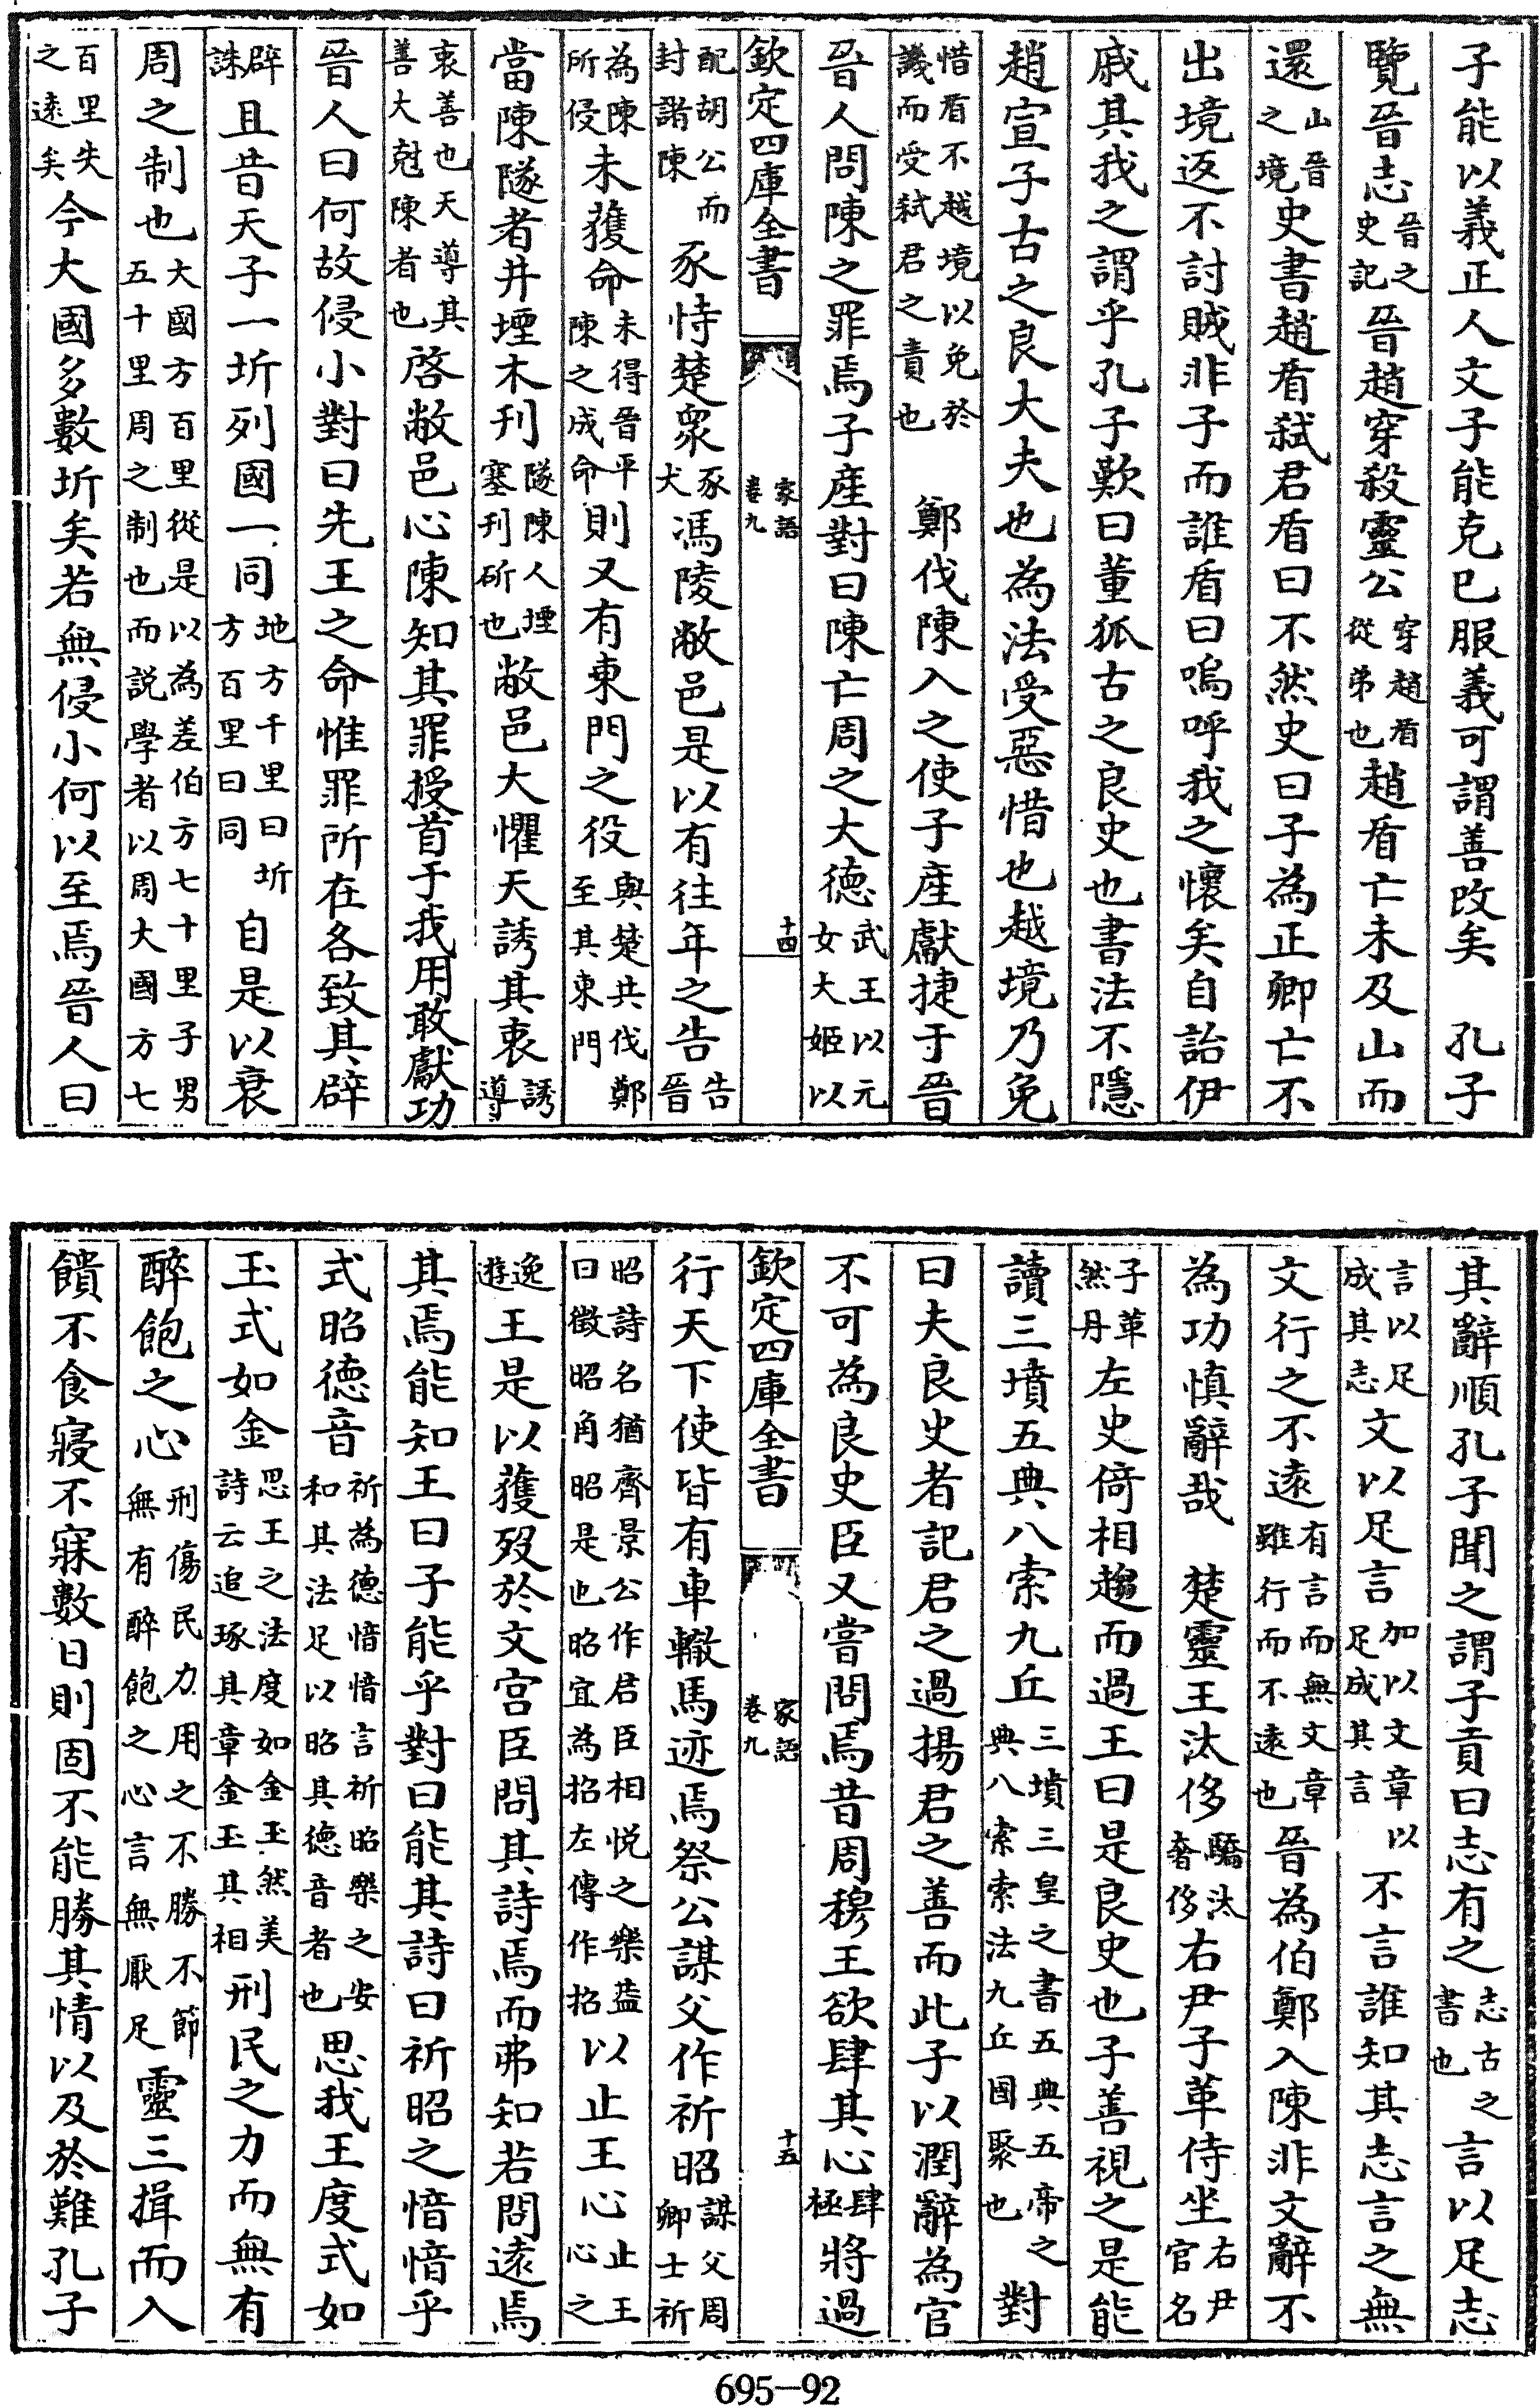 子能以義正人文子能克己服義可謂善改矣　孔子
覽晉志晉之史記晉趙穿殺靈公穿趙盾從弟也趙盾亡未及山而
還山晉之境史書趙盾弒君盾曰不然史曰子為正卿亡不
出境返不討賊非子而誰盾曰嗚呼我之懷矣自詒伊
戚其我之謂乎孔子歎曰董狐古之良史也書法不隱
趙宣子古之良大夫也為法受惡惜也越境乃免
惜盾不越境以免於譏而受弒君之責也　鄭伐陳入之使子產獻捷于晉
晉人問陳之罪焉子產對曰陳亡周之大德武王以元女大姬以
欽定四庫全書　家語卷九　十四
配胡公而封諸陳豕恃楚衆豕犬馮陵敝邑是以有往年之告告晉
為陳所侵未獲命未得晉平陳之成命則又有東門之役與楚共伐鄭至其東門
當陳隧者井堙木刋隧陳人堙塞刋斫也敝邑大懼天誘其衷誘導
衷善也天導其善大尅陳者也啓敝邑心陳知其罪授首于我用敢獻功
晉人曰何故侵小對曰先王之命惟罪所在各致其辟
辟誅且昔天子一圻列國一同地方千里曰圻方百里曰同自是以衰
周之制也大國方百里從是以為差伯方七十里子男五十里周之制也而説學者以周大國方七
百里失之逺矣今大國多數圻矣若無侵小何以至焉晉人曰
其辭順孔子聞之謂子貢曰志有之志古之書也言以足志
言以足成其志文以足言加以文章以足成其言不言誰知其志言之無
文行之不逺有言而無文章雖行而不逺也晉為伯鄭入陳非文辭不
為功慎辭哉　楚靈王汰侈驕汰奢侈右尹子革侍坐右尹官名
子革然丹左史倚相趨而過王曰是良史也子善視之是能
讀三墳五典八索九丘三墳三皇之書五典五帝之典八索索法九丘國聚也對
曰夫良史者記君之過揚君之善而此子以潤辭為官
不可為良史臣又嘗問焉昔周穆王欲肆其心肆極將過
欽定四庫全書　家語卷九　十五
行天下使皆有車轍馬迹焉祭公謀父作祈昭謀父周卿士祈
昭詩名猶齊景公作君臣相悅之樂葢曰徵昭角昭是也昭宜為招左傳作招以止王心止王心之
逸遊王是以獲歿於文宫臣問其詩焉而弗知若問逺焉
其焉能知王曰子能乎對曰能其詩曰祈昭之愔愔乎
式昭德音祈為德愔愔言祈昭樂之安和其法足以昭其德音者也思我王度式如
玉式如金思王之法度如金玉然美詩云追琢其章金玉其相刑民之力而無有
醉飽之心刑傷民力用之不勝不節無有醉飽之心言無厭足靈王揖而入
饋不食寢不寐數日則固不能勝其情以及於難孔子
695-92